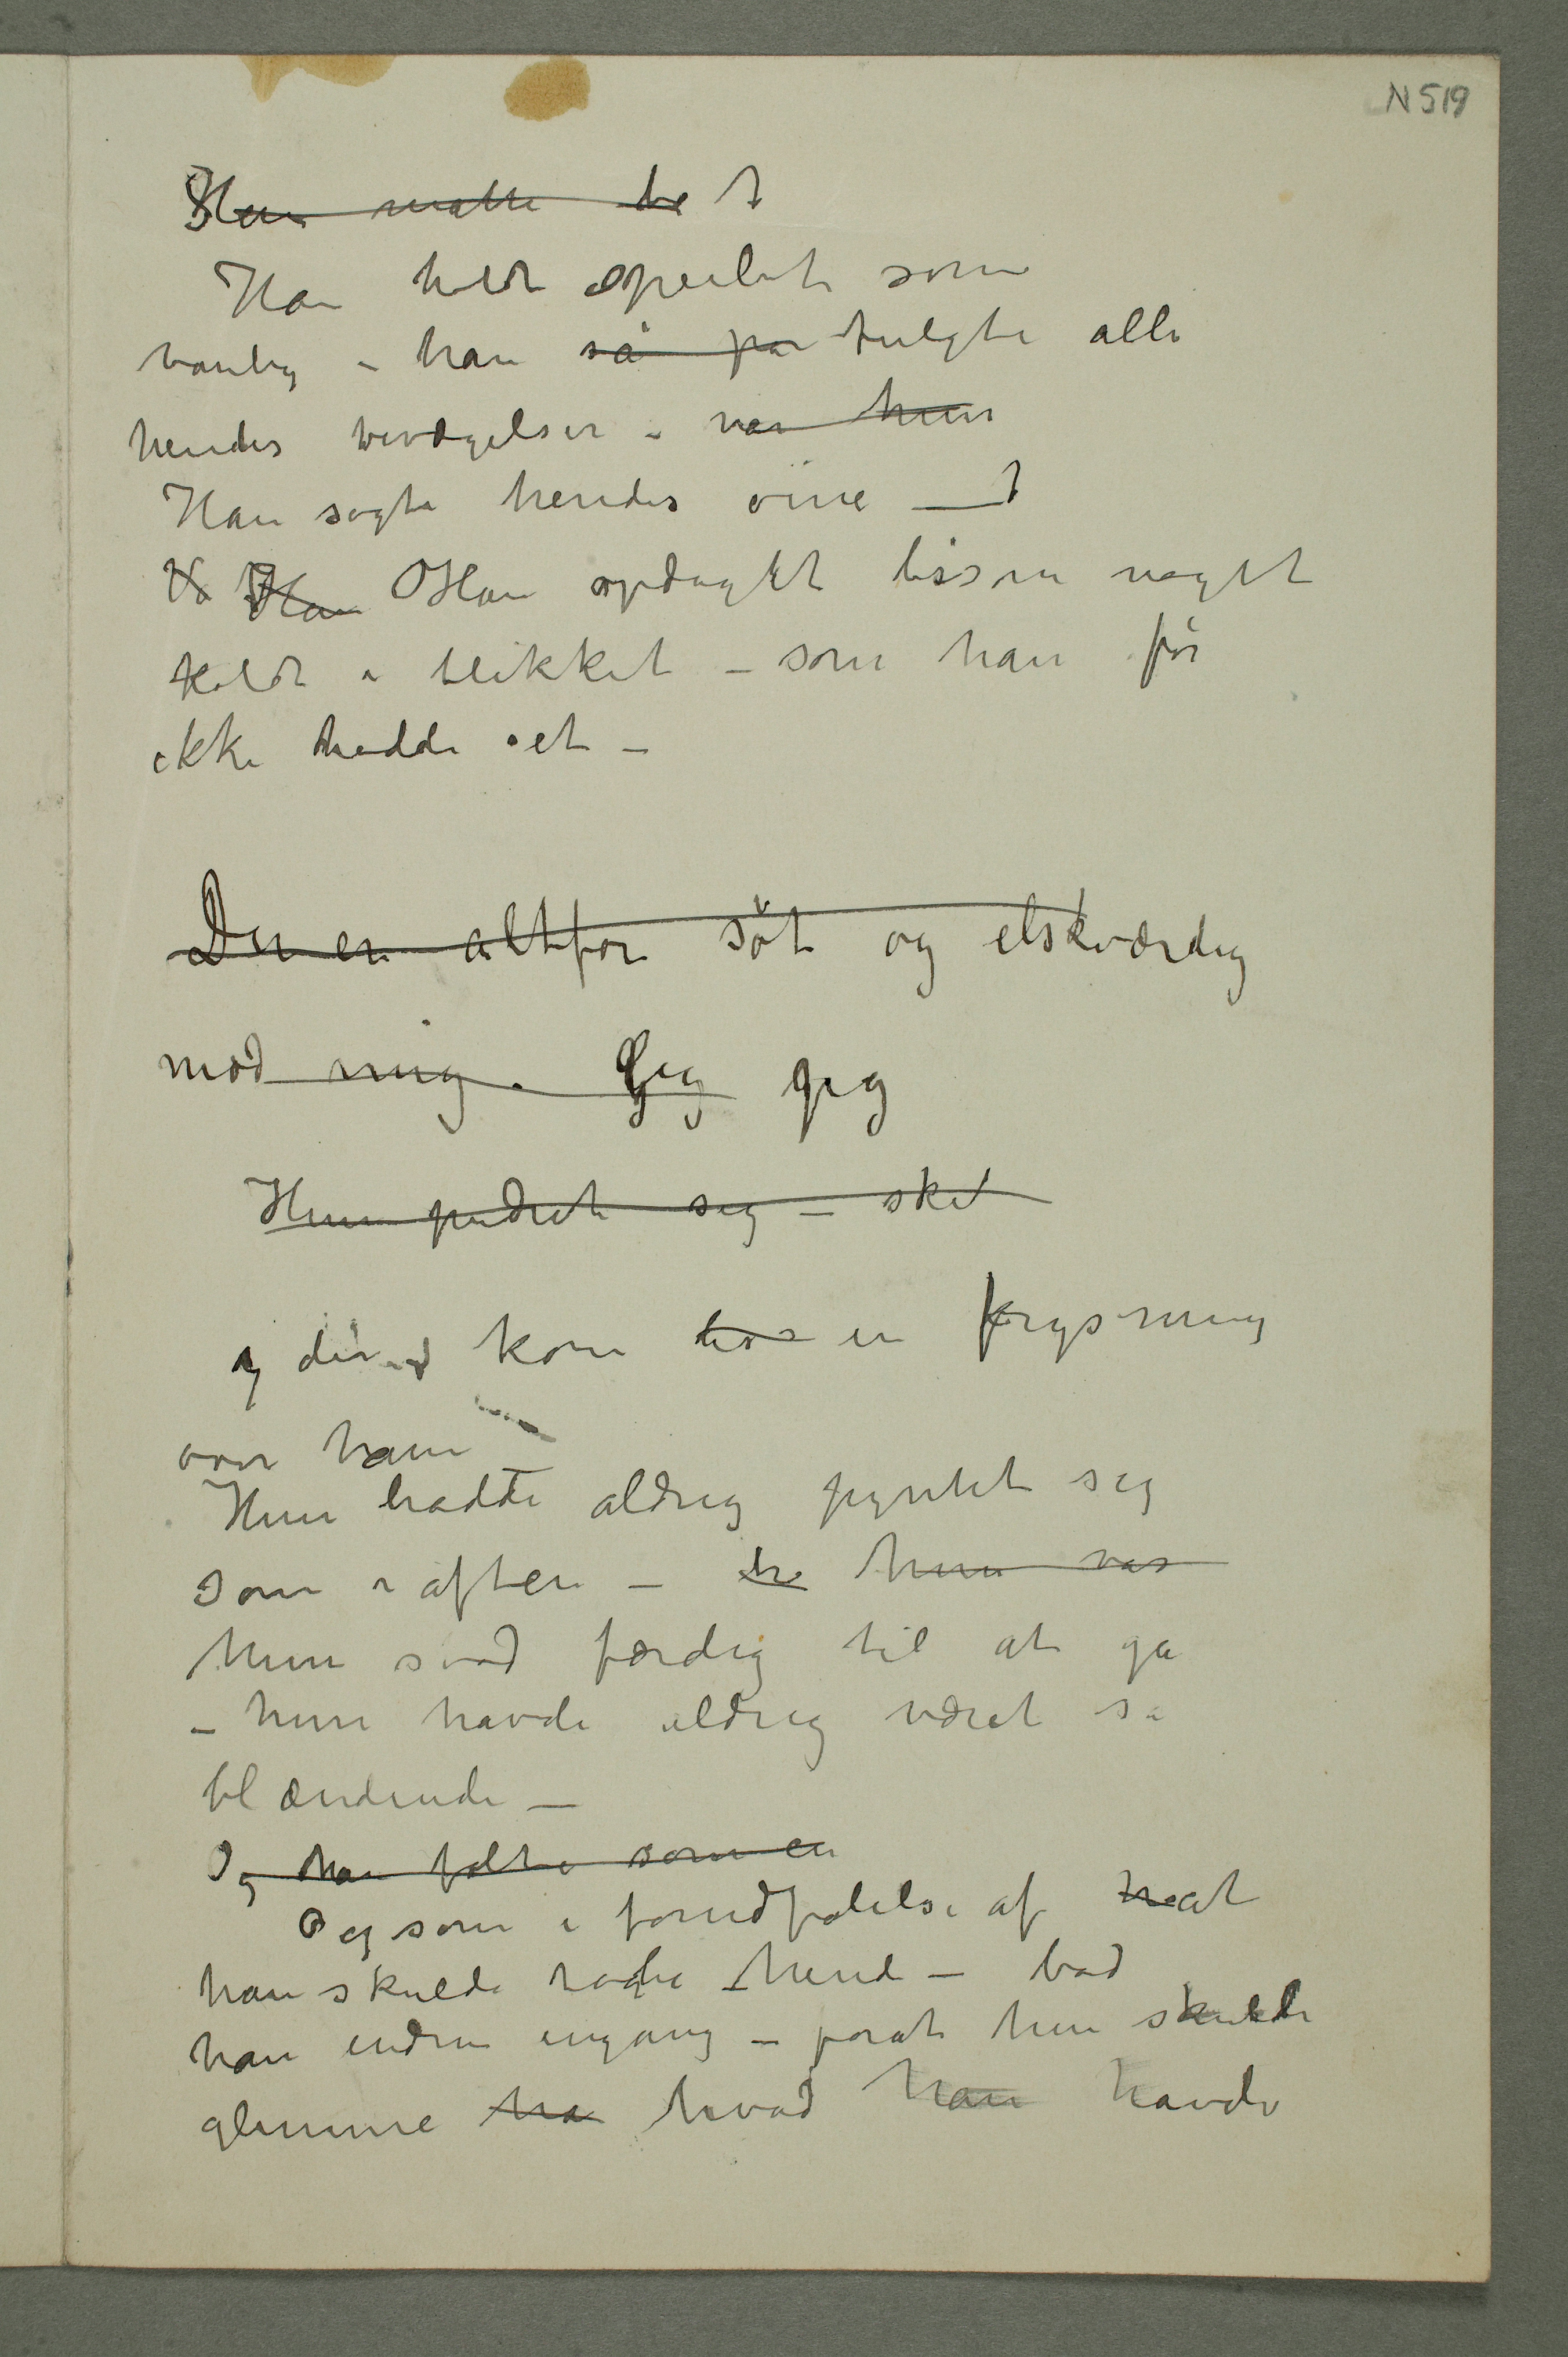 N 519
Hun måtte be
Han holdt speilet som
vanlig – han så på fulgte alle
hendes bevægelser – når hun
Han søgte hendes øine –
Han Han opdaget lissom noget
koldt i blikket – som han før
ikke hadde set –
Du er altfor söt og elskværdig
mod mig. Jeg jeg
Hun pudret sig – sket
og der kom lis en frysning
over ham
Hun hadde aldrig pyntet sig
som i aften – hu hun var
hun stod færdig til at gå
– hun havde aldrig været så
blændende –
Og han følte som en
Og som i forudfølelse af h at
han skulde tabe hende – bad
han endnu engang – forat hun skulde
glemme ha hvad han havde